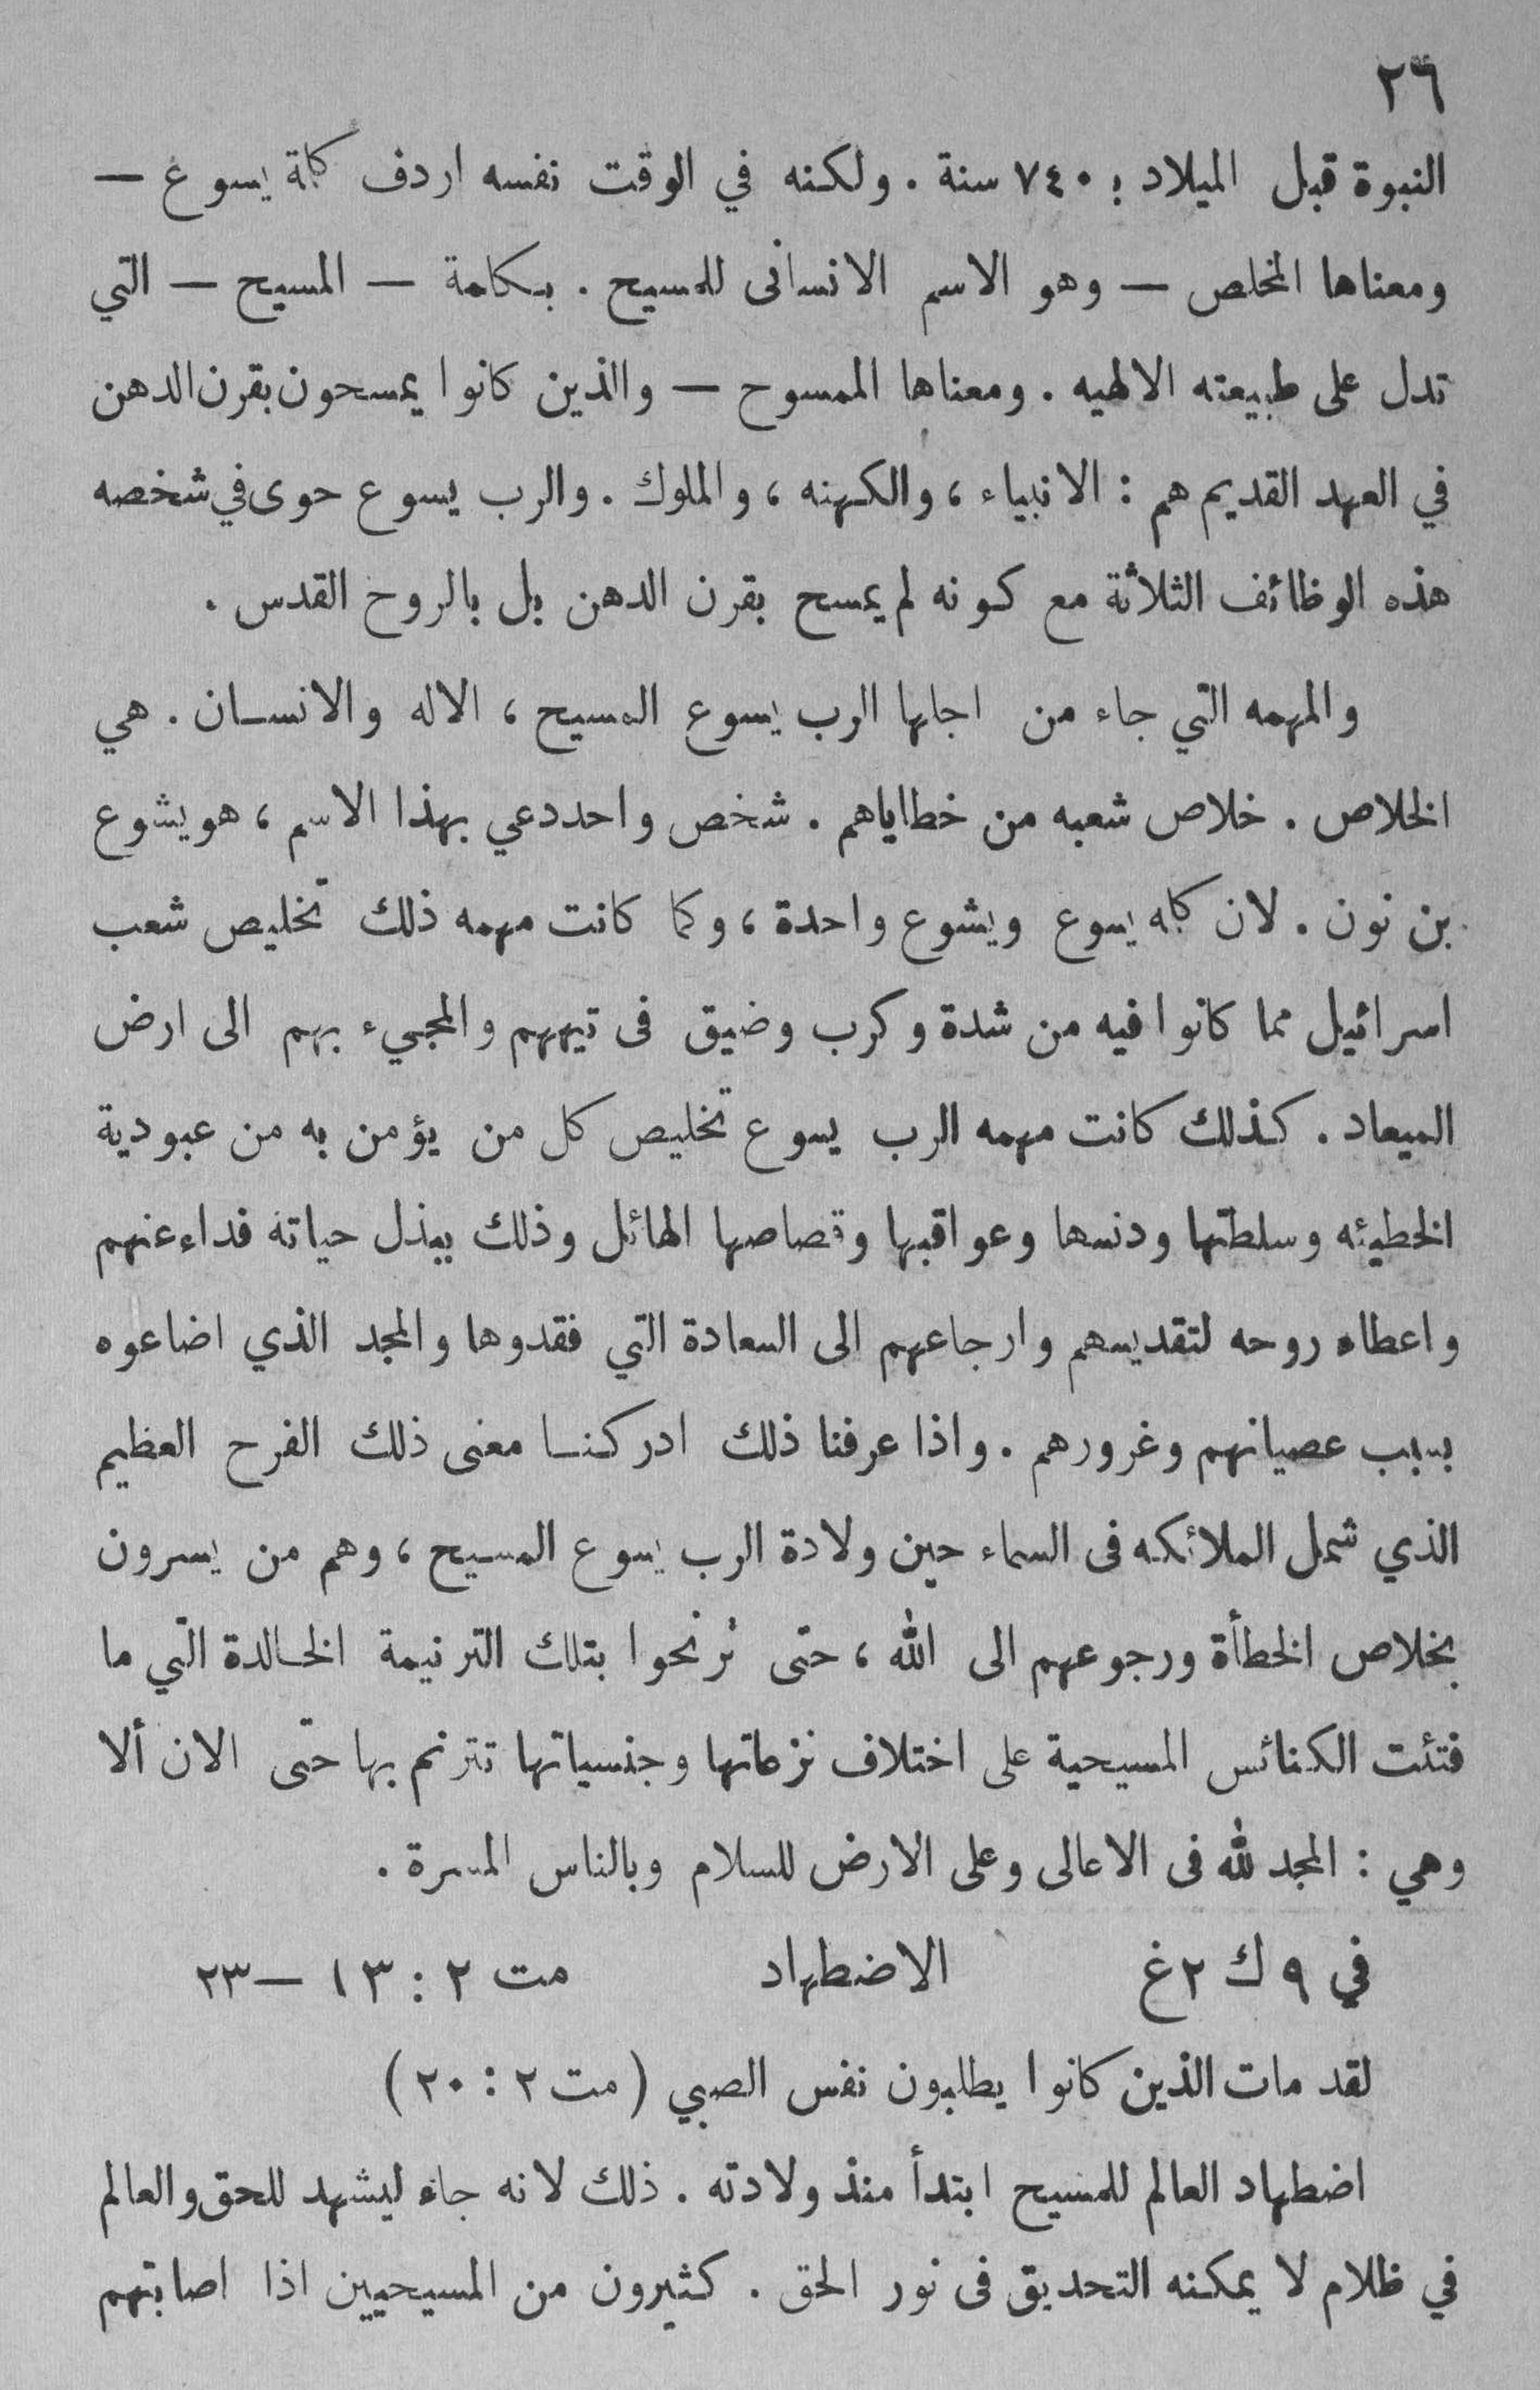 ٢٦
النبوة قبل الميلاد بـ ٧٤٠ سنة . ولكنه في الوقت نفسه اردف كلمة يسوع —
ومعناها المخلص — وهو الاسم الانسانى للمسيح . بكلمة — المسيح — التي
تدل على طبيعته الالهيه . ومعناها الممسوح — والذين كانوا يمسحون بقرن الدهن
في العهد القديم هم : الانبياء ، والكهنه ، والملوك . والرب يسوع حوى في شخصه
هذه الوظائف الثلاثة مع كونه لم يمسح بقرن الدهن بل بالروح القدس .
والمهمه التي جاء من اجلها الرب يسوع المسيح ، الاله والانسان . هي
الخلاص . خلاص شعبه من خطاياهم . شخص واحد دعي بهذا الاسم ، هو يشوع
بن نون . لان كلمه يسوع ويشوع واحدة ، وكما كانت مهمه ذلك تخليص شعب
اسرائيل مما كانوا فيه من شدة وكرب وضيق فى تيههم والمجيء بهم الى ارض
الميعاد . كذلك كانت مهمه الرب يسوع تخليص كل من يؤمن به من عبودية
الخطيئه وسلطتها ودنسها وعواقبها وقصاصها الهائل وذلك ببذل حياته فداء عنهم
واعطاء روحه لتقديسهم وارجاعهم الى السعادة التي فقدوها والمجد الذي اضاعوه
بسبب عصيانهم وغرورهم . واذا عرفنا ذلك ادركنا معنى ذلك الفرح العظيم
الذي شمل الملائكه فى السماء حين ولادة الرب يسوع المسيح ، وهم من يسرون
بخلاص الخطأة ورجوعهم الى الله ، حتى ترنحوا بتلك الترنيمة الخالدة التي ما
فتئت الكنائس المسيحية على اختلاف نزعاتها وجنسياتها تترنم بها حتى الان ألا
وهي : المجد لله فى الاعالى وعلى الارض للسلام وبالناس المسرة .
في ٩ ك ٢ غ الاضطهاد مت ٢ : ١٣ — ٢٣
لقد مات الذين كانوا يطلبون نفس الصبي ( مت ٢ : ٢٠ )
اضطهاد العالم للمسيح ابتدأ منذ ولادته . ذلك لانه جاء ليشهد للحق والعالم
في ظلام لا يمكنه التحديق فى نور الحق . كثيرون من المسيحيين اذا اصابتهم